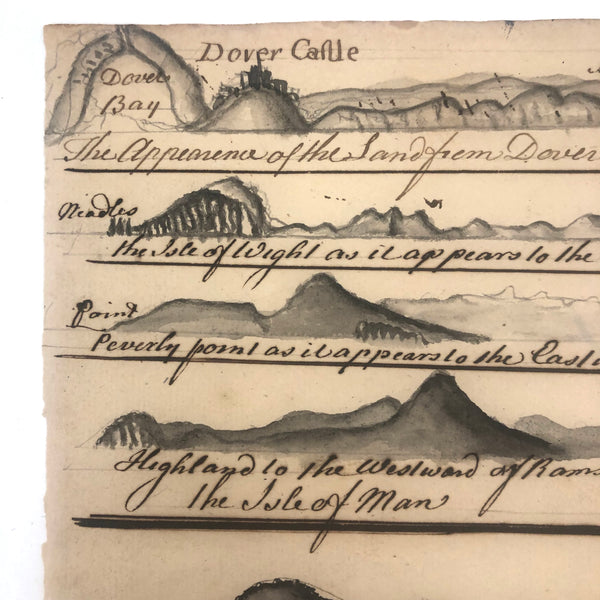 Dover Castle
Dover
Bay
The Appearence of the Land from Dover
Needles
the Isle of Wight as it appears to the
Point
Peverly point as it appears to the East
Highland to the Westward of Rams
the Isle of Man